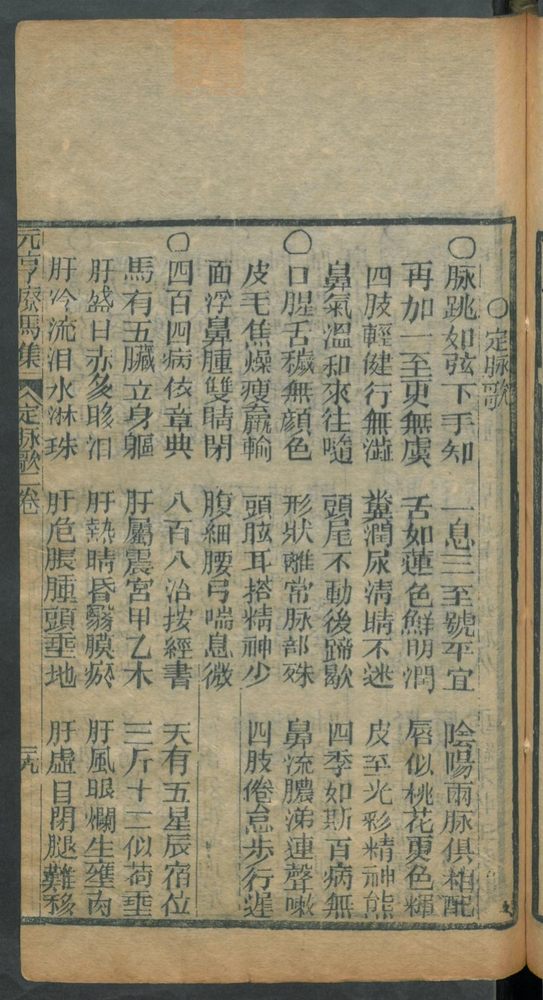 ○定脉歌
○脉跳如弦下手知 一息三至號平宜 陰陽兩脉俱相配
再加一至更無虞 舌如蓮色鮮明潤 唇似桃花更色輝
四肢輕健行無澁 糞潤尿清睛不迷 皮毛光彩精神
鼻氣溫和來往隨 頭尾不動後蹄歇 四季如斯百病無
○口腥舌穢無顔色 形狀離常脉部殊 鼻流膿涕連聲嗽
皮毛焦燥瘦羸輸 頭眩耳搭精神少 四肢倦怠步行遲
面浮鼻腫雙睛閉 腹細腰弓喘息微
○四百四病依章典 八百八治按經書 天有五星辰宿位
馬有五臟立身軀 肝屬震宮甲乙木 三斤十二似荷垂
肝盛目赤多眵泪 肝熱睛昏翳膜瘀 肝風眼爛生瘀肉
肝冷流泪水淋珠 肝危脹腫頭垂地 肝虛目閉腿難移
元亨療馬集 定脉歌 一卷 二九